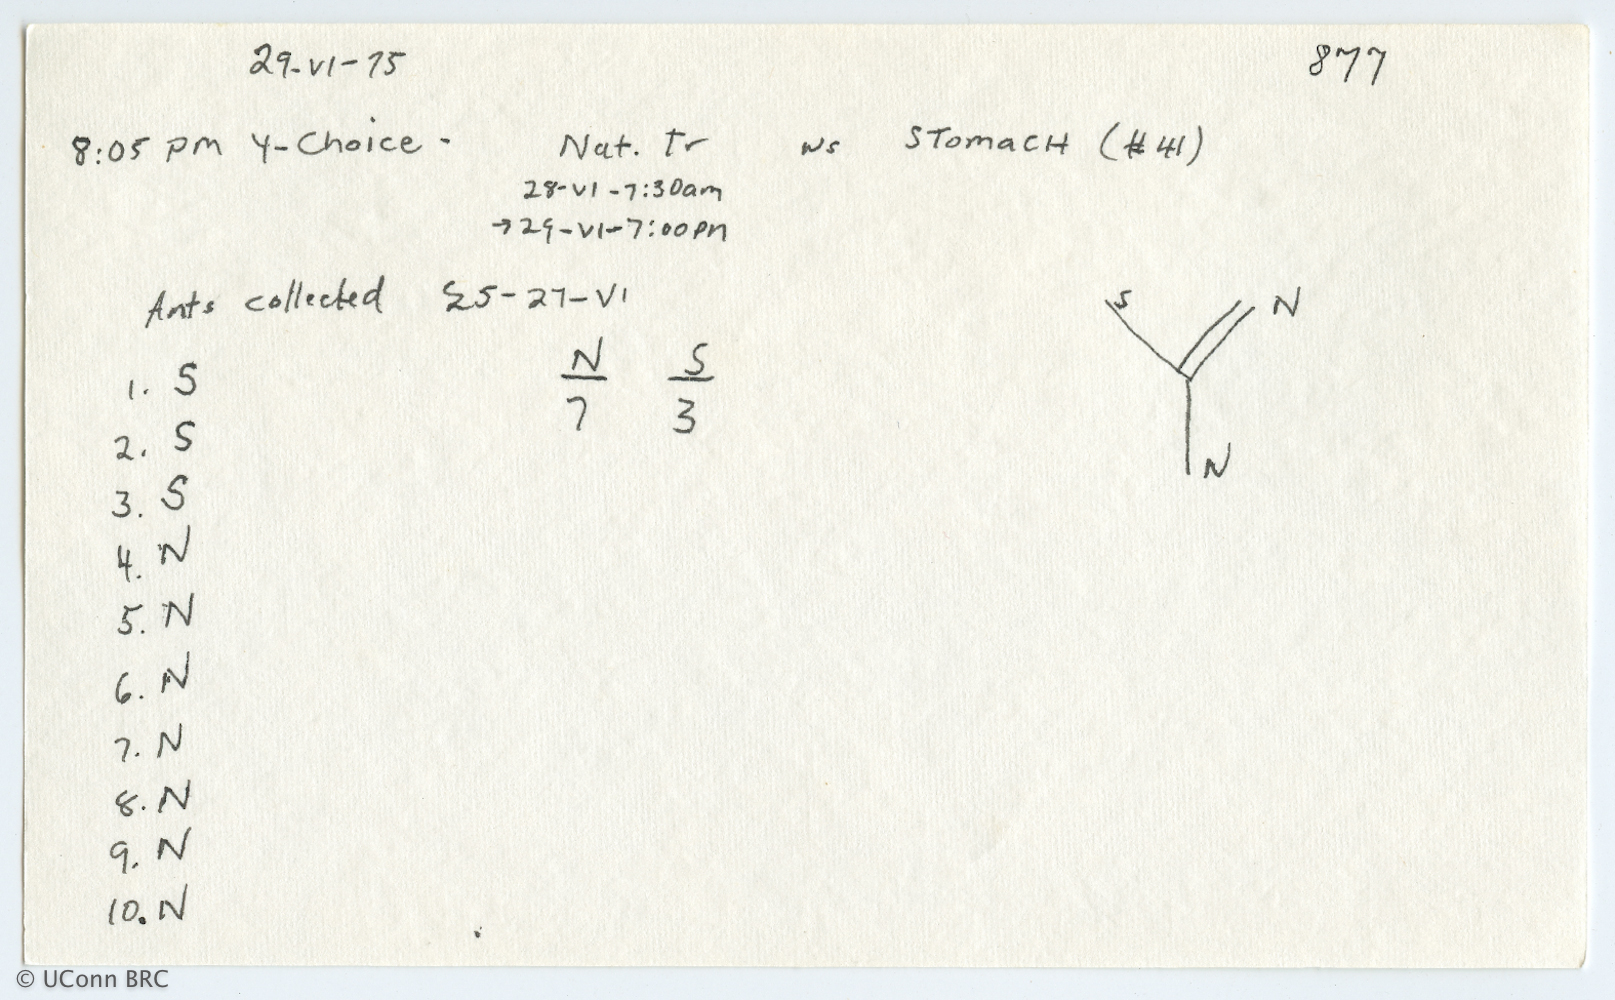 29-VI-75 877
8:05 pm Y-Choice - Nat. Tr vs STomacH (#41)
28-VI-7:30am
→29-VI-7:00pm
Ants collected 25-27-VI
S N
N S
1. S
7 3
2. S
N
3. S
4. N
5. N
6. N
7. N
8. N
9. N
10. N
© UConn BRC